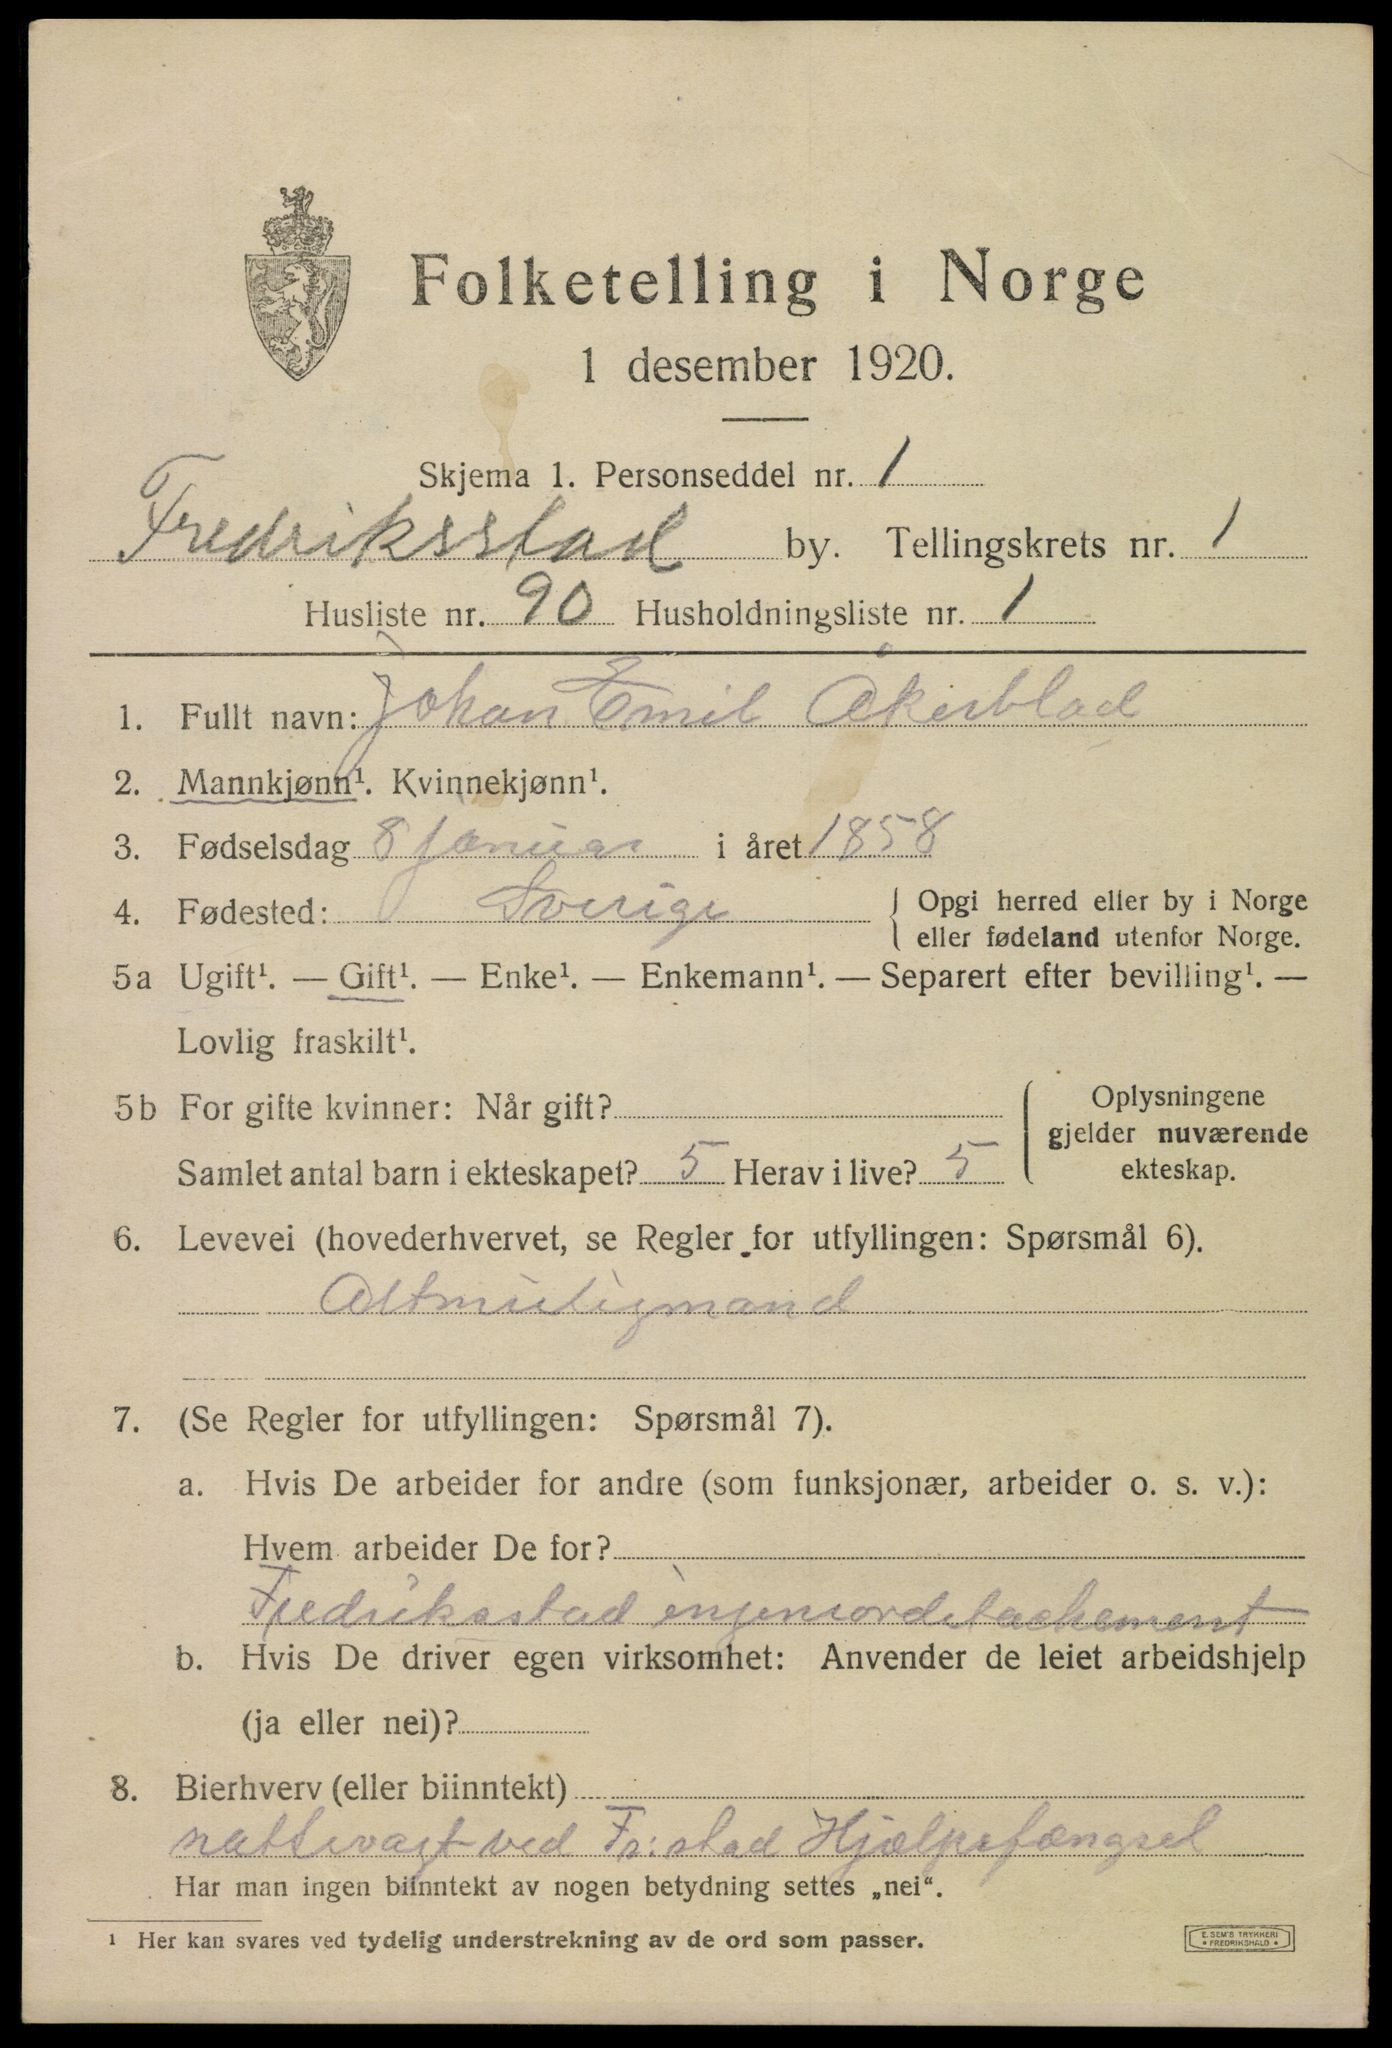 Folketelling i Norge
1 desember 1920.
Skjema 1. Personseddel nr. 1
Fredriksstad by. Tellingskrets nr. 1
Husliste nr. 90 Husholdningsliste nr. 1
1. Fullt navn: Johan Emil Åkerblad
2. Mannkjønn¹. Kvinnekjønn¹.
3. Fødselsdag 8 januar i året 1858
4. Fødested: Sverige
Opgi herred eller by i Norge
eller fødeland utenfor Norge.
5a Ugift¹. — Gift¹. — Enke¹. — Enkemann¹. — Separert efter bevilling¹. —
Lovlig fraskilt¹.
5b For gifte kvinner: Når gift?
Samlet antal barn i ekteskapet? 5 Herav i live? 5
Oplysningene
gjelder nuværende
ekteskap.
6. Levevei (hovederhvervet, se Regler for utfyllingen: Spørsmål 6).
Altmuligmand
7. (Se Regler for utfyllingen: Spørsmål 7).
a. Hvis De arbeider for andre (som funksjonær, arbeider o. s. v.):
Hvem arbeider De for?
Fredriksstad ingeniordetachement
b. Hvis De driver egen virksomhet: Anvender de leiet arbeidshjelp
(ja eller nei)?
8. Bierhverv (eller biinntekt)
nattevagt ved Fr:stad Hjælpefængsel
Har man ingen biinntekt av nogen betydning settes „nei“.
¹ Her kan svares ved tydelig understrekning av de ord som passer.
E. SEM'S TRYKKERI
• FREDRIKSHALD •